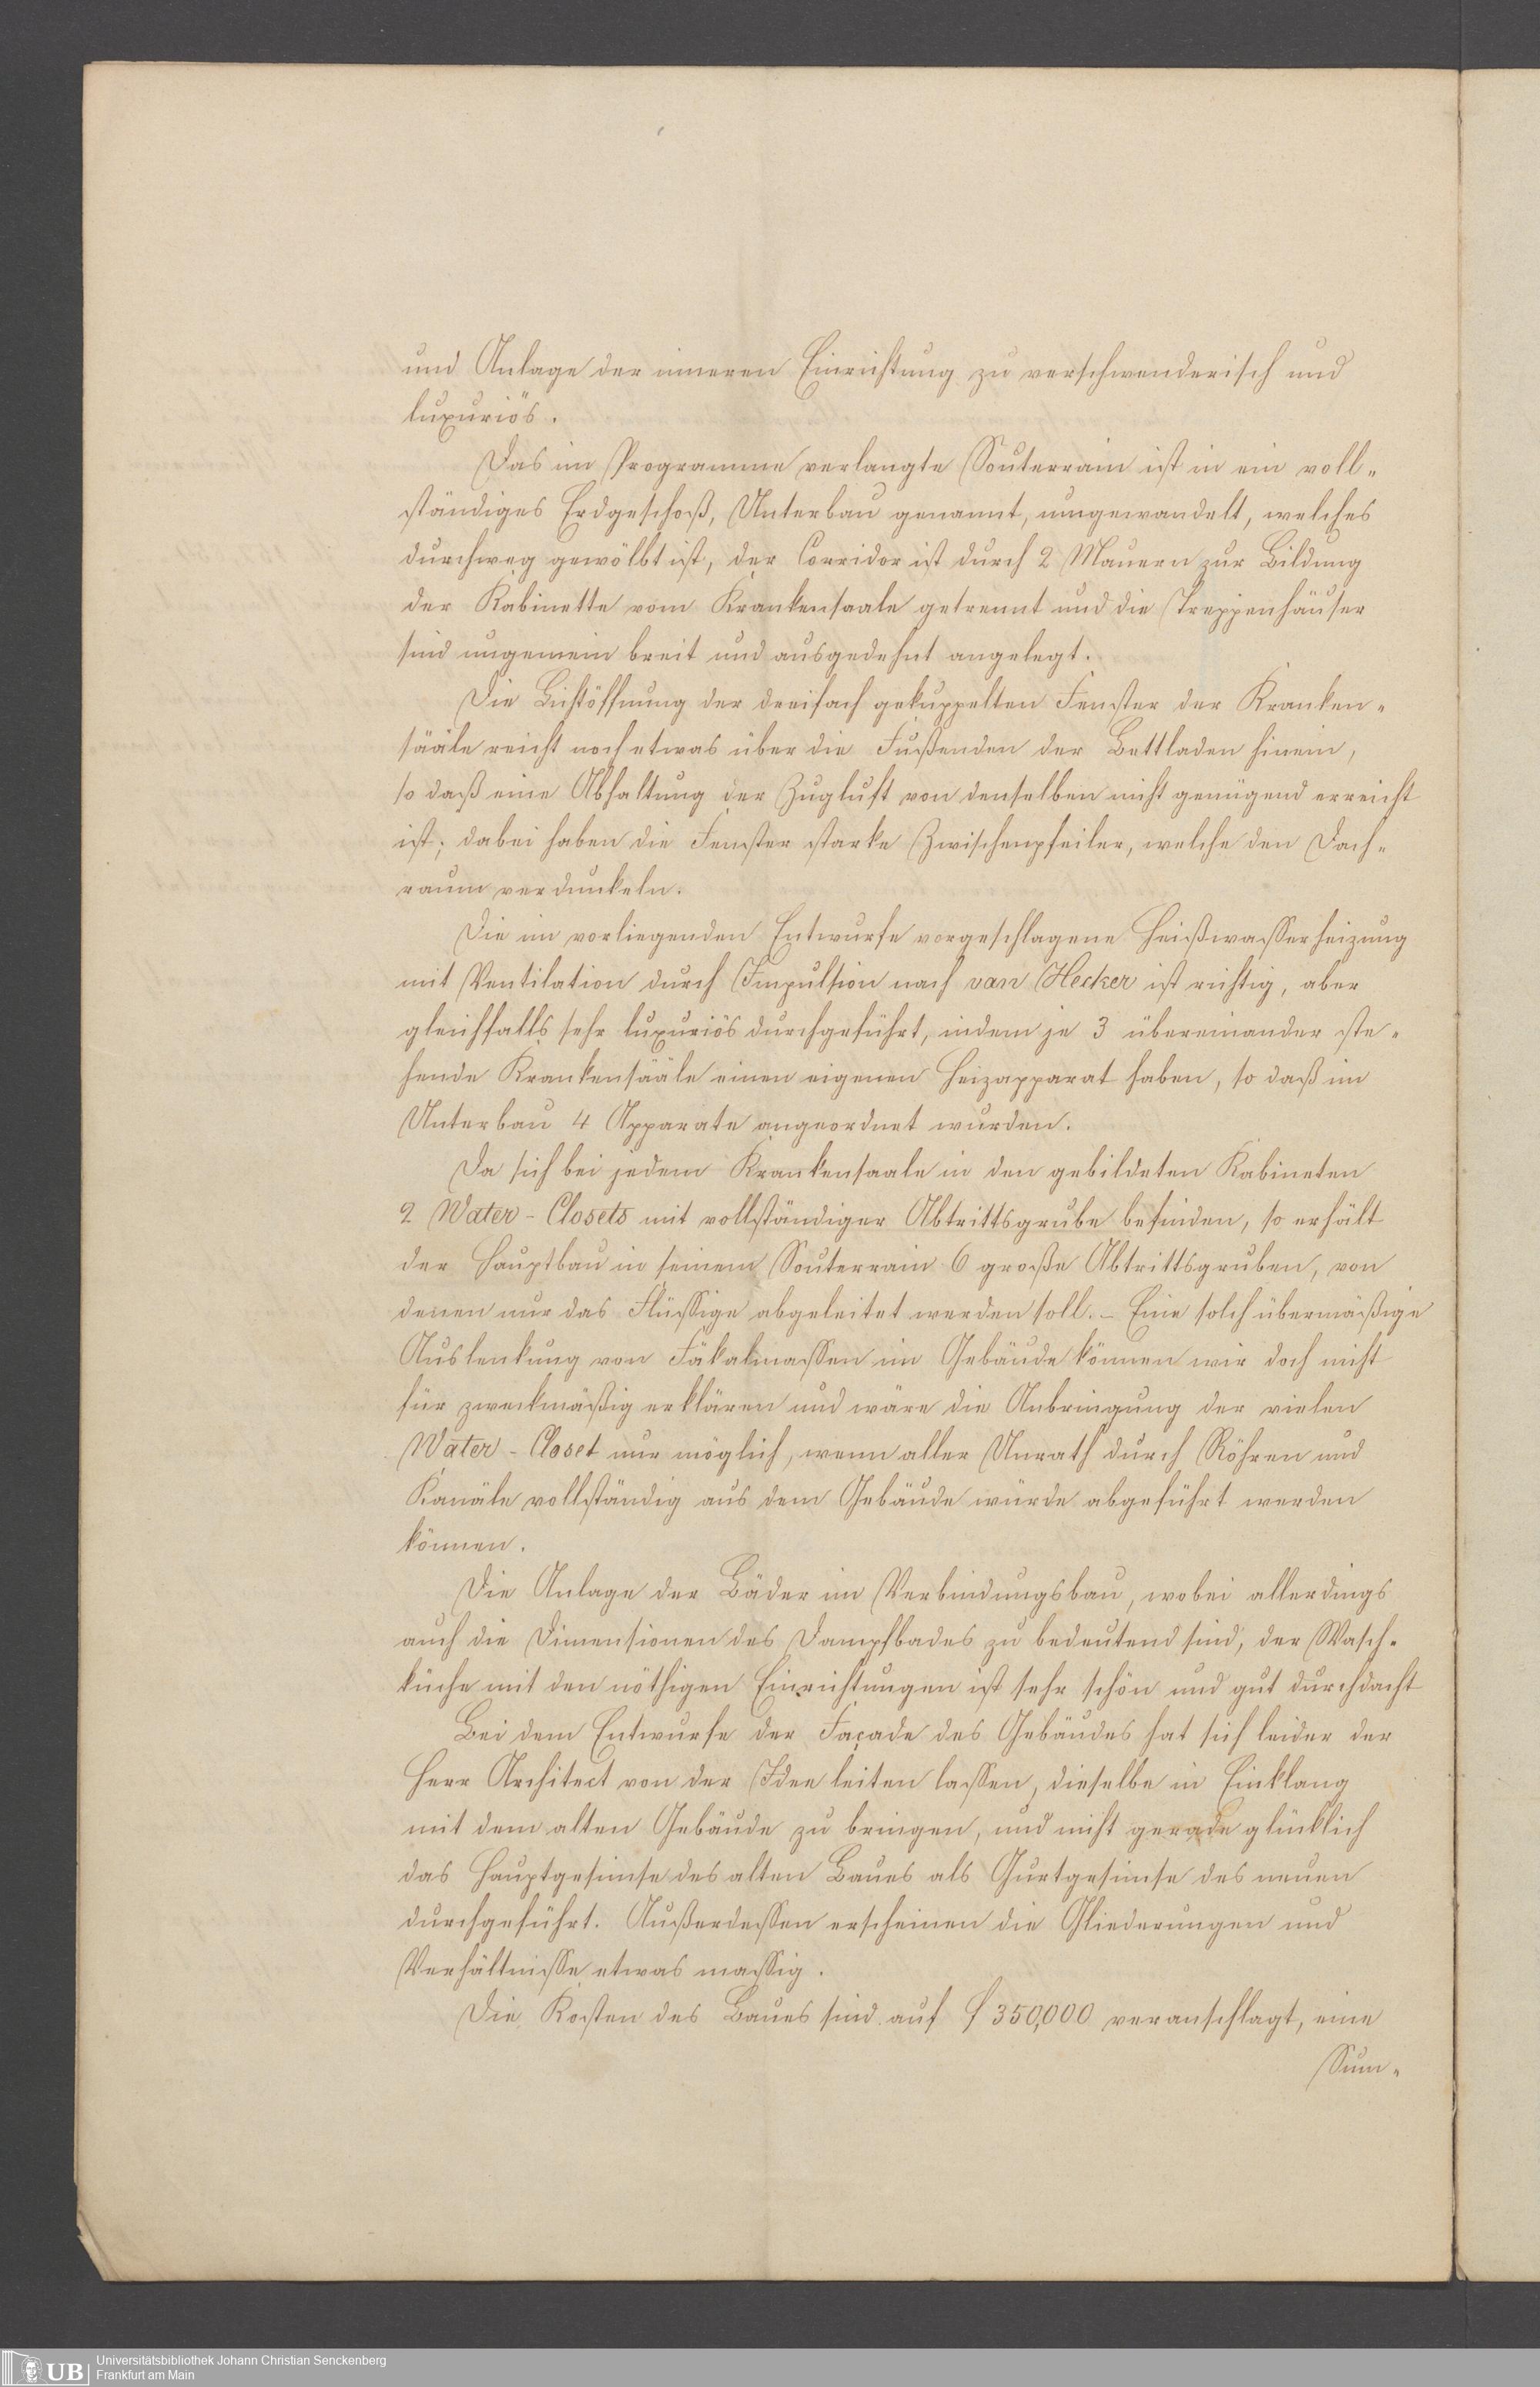 und Anlage der inneren Einrichtung zu verschwenderisch und
luxuriös.
Das im Programme verlangte Souterrain ist in ein voll-
ständiges Erdgeschoß, Unterbau genannt, umgewandelt, welches
durchweg gewölbt ist, der Corridor ist durch 2 Mauern zur Bildung
der Kabinette vom Krankensaale getrennt und die Treppenhäuser
sind ungemein breit und ausgedehnt angelegt.
Die Lichtöffnung der dreifach gekuppelten Fenster der Kranken-
sääle reicht noch etwas über die Fußenden der Bettladen hinein,
so daß eine Abhaltung der Zugluft von denselben nicht genügend erreicht
ist; dabei haben die Fenster starke Zwischenpfeiler, welche den Dach-
raum verdunkeln.
Die im vorliegenden Entwurfe vorgeschlagene Heißwasserheizung
mit Ventilation durch Impulsion nach van Hecker ist richtig, aber
gleichfalls sehr luxuriös durchgeführt, indem je 3 übereinander ste-
hende Krankensääle einen eigenen Heizapparat haben, so daß im
Unterbau 4 Apparate angeordnet wurden.
Da sich bei jedem Krankensaale in den gebildeten Kabineten
2 Water-Closets mit vollständiger Abtrittsgrube befinden, so erhält
der Hauptbau in seinem Souterrain 6 große Abtrittsgruben, von
denen nur das Flüssige abgeleitet werden soll. - Eine solch übermäßige
von Fäkalmassen im Gebäude können wir doch nicht
für zweckmäßig erklären und wäre die Anbringung der vielen
Water-Closet nur möglich, wenn aller Unrath durch Röhren und
Kanäle vollständig aus dem Gebäude würde abgeführt werden
können.
Die Anlage der Bäder im Verbindungsbau, wobei allerdings
auch die Dimensionen des Dampfbades zu bedeutend sind, der Wasch-
küche mit den nöthigen Einrichtungen ist sehr schön und gut durchdacht
Bei dem Entwurfe der Façade des Gebäudes hat sich leider der
Herr Architect von der Idee leiten lassen, dieselbe in Einklang
mit dem alten Gebäude zu bringen, und nicht gerade glücklich
das Hauptgesimse des alten Baues als Gurtgesimse des neuen
durchgeführt. Außerdessen erscheinen die Gliederungen und
Verhältnisse etwas massig.
Die Kosten des Baues sind auf f 350,000 veranschlagt, eine
Sum-
UB
Universitätsbibliothek Johann Christian Senckenberg
Frankfurt am Main